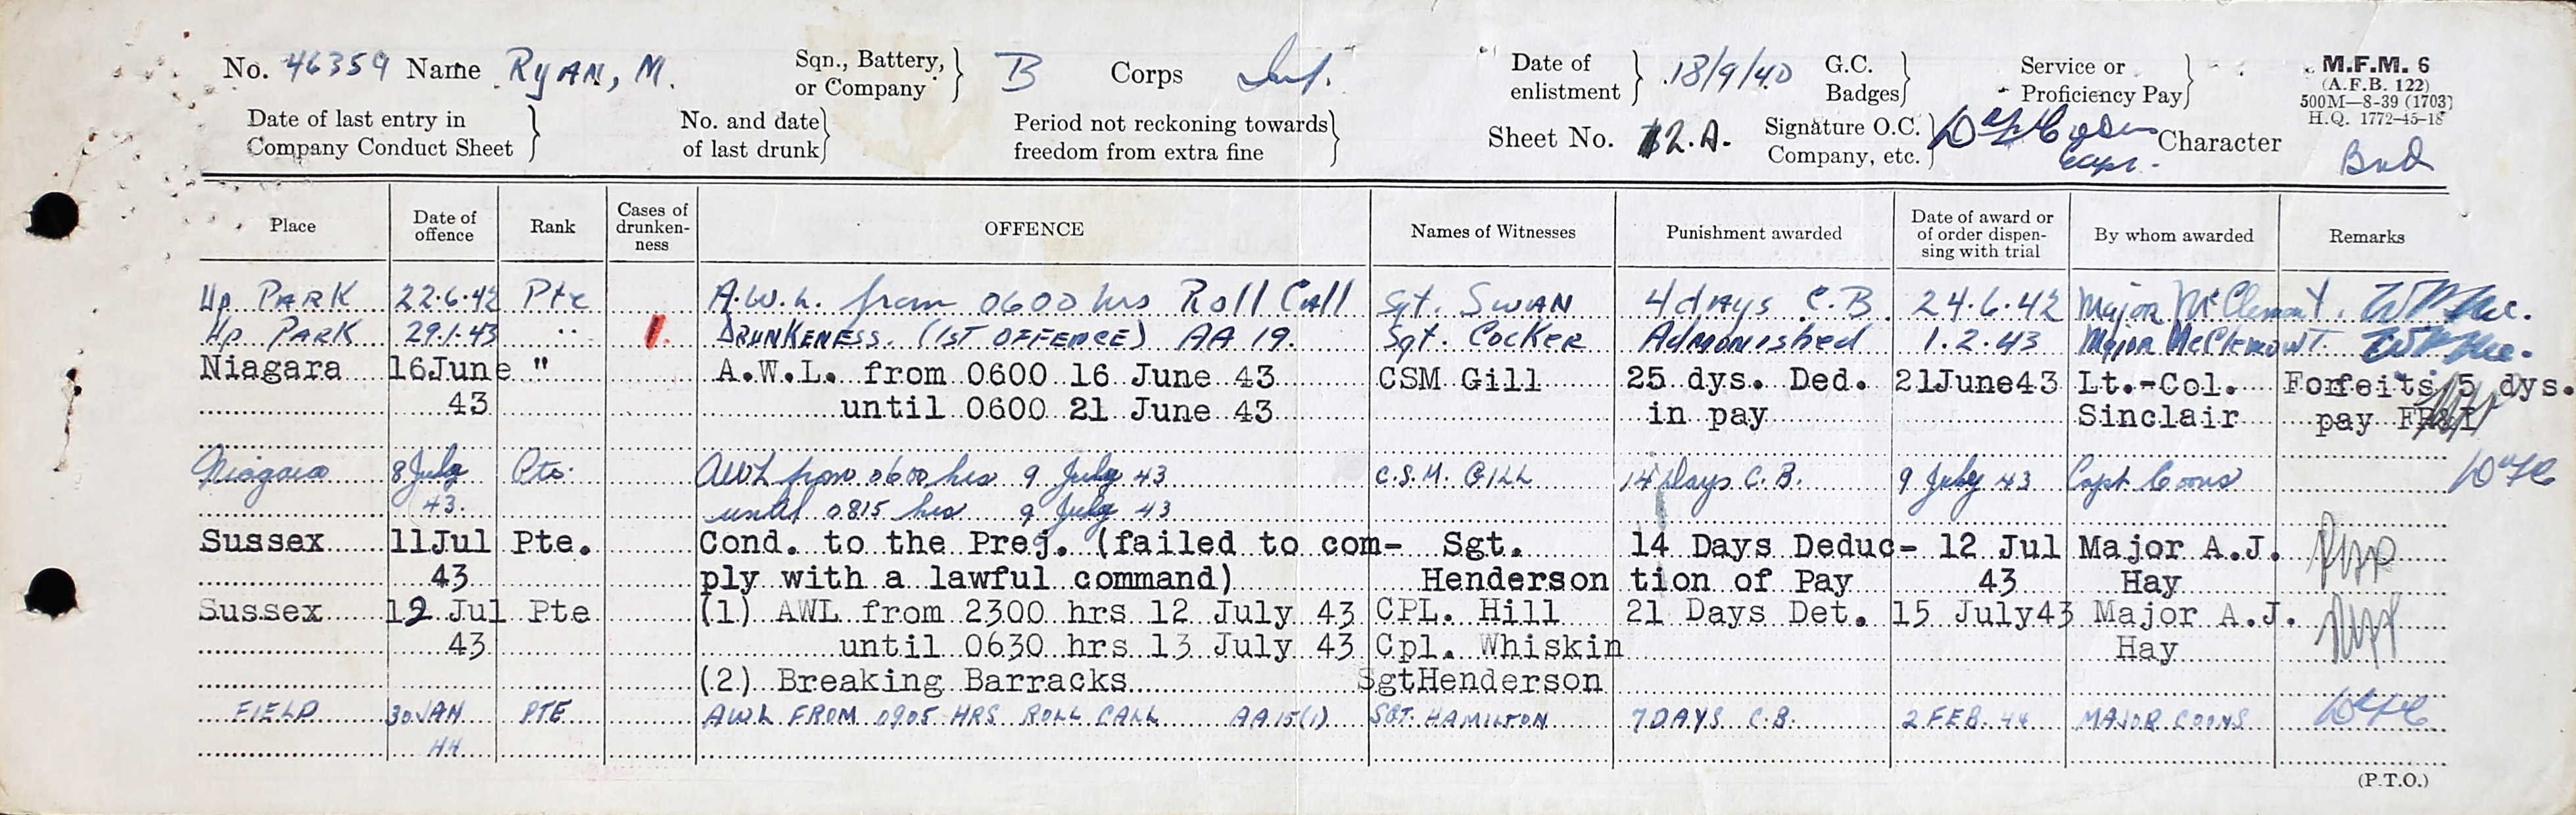 No. 46359 Name RYAN, M. Sqn., Battery, or Company B Corps Inf. Date of enlistment 18/9/40 G.C. Badges Service or Proficiency Pay M.F.M. 6
(A.F.B. 122)
500M—8-39 (1703)
H.Q. 1772-45-18
Date of last entry in Company Conduct Sheet No. and date of last drunk Period not reckoning towards freedom from extra fine Sheet No. 2.A. Signature O.C. Company, etc. Capt. Character Bad
Place Date of offence Rank Cases of drunken-ness OFFENCE Names of Witnesses Punishment awarded Date of award or of order dispen-sing with trial By whom awarded Remarks
Up PARK 22.6.42 Pte A.W.L. from 0600 hrs Roll Call Sgt. SWAN 4 days C.B. 24.6.42 Major McClemont.
Up PARK 29.1.43 " 1. DRUNKENESS. (1ST OFFENCE) AA 19. Sgt. COCKER Admonished 1.2.43 Major McClemont
Niagara 16June " A.W.L. from 0600 16 June 43 CSM Gill 25 dys. Ded. 21June43 Lt.-Col. Forfeits 5 dys.
43 until 0600 21 June 43 in pay Sinclair pay FR&I
Niagara 8 July Pte. AWL from 0600 hrs 9 July 43 C.S.M. GILL 14 Days C.B. 9 July 43 Capt Coons
43. until 0815 hrs 9 July 43
Sussex 11Jul Pte. Cond. to the Prej. (failed to com- Sgt. 14 Days Deduc- 12 Jul Major A.J.
43 ply with a lawful command) Henderson tion of Pay 43 Hay
Sussex 12 Jul Pte (1) AWL from 2300 hrs 12 July 43 CPL. Hill 21 Days Det. 15 July43 Major A.J.
43 until 0630 hrs 13 July 43 Cpl. Whiskin Hay
(2) Breaking Barracks SgtHenderson
FIELD 30 JAN PTE AWL FROM 0905 HRS ROLL CALL AA15(1) SGT. HAMILTON 7 DAYS C.B. 2 FEB. 44 MAJOR COONS
44
(P.T.O.)